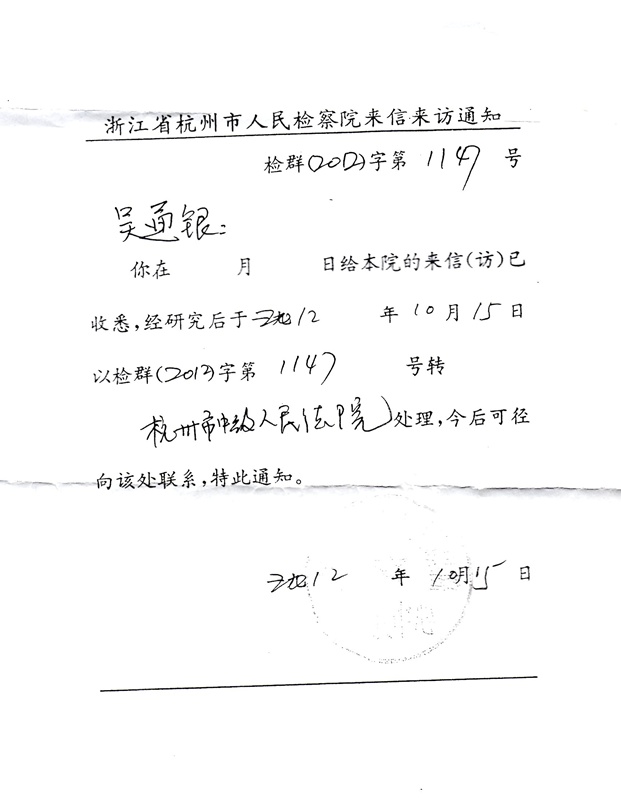 浙江省杭州市人民检察院来信来访通知
检群(2012)字第 1147 号
吴通银：
你在 月 日给本院的来信(访)已
收悉,经研究后于2012 年 10月15日
以检群(2012)字第 1147 号转
杭州市中级人民法院处理,今后可径
向该处联系,特此通知。
2012 年 10月15日